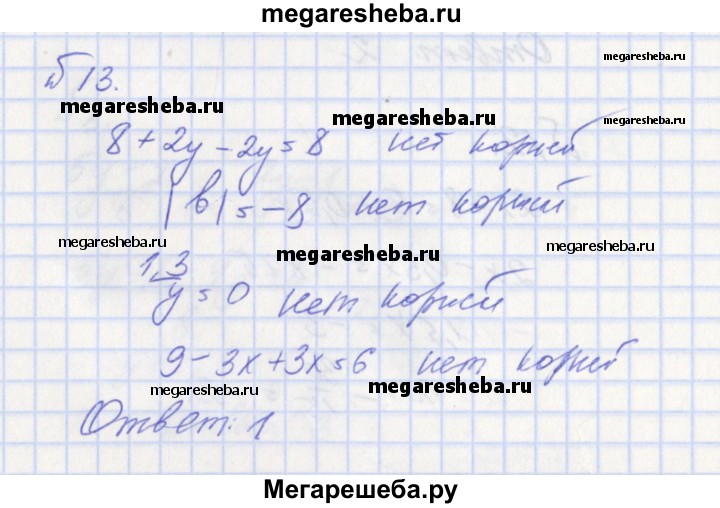 megaresheba.ru
№ 13.
megaresheba.ru
megaresheba.ru
megaresheba.ru
megaresheba.ru
8 + 2y - 2y = 8 нет корней
|b| = -8 нет корней
megaresheba.ru
megaresheba.ru
megaresheba.ru
1,3/y = 0 нет корней
9 - 3x + 3x = 6 нет корней
megaresheba.ru
megaresheba.ru
Ответ: 1
Мегарешеба.ру